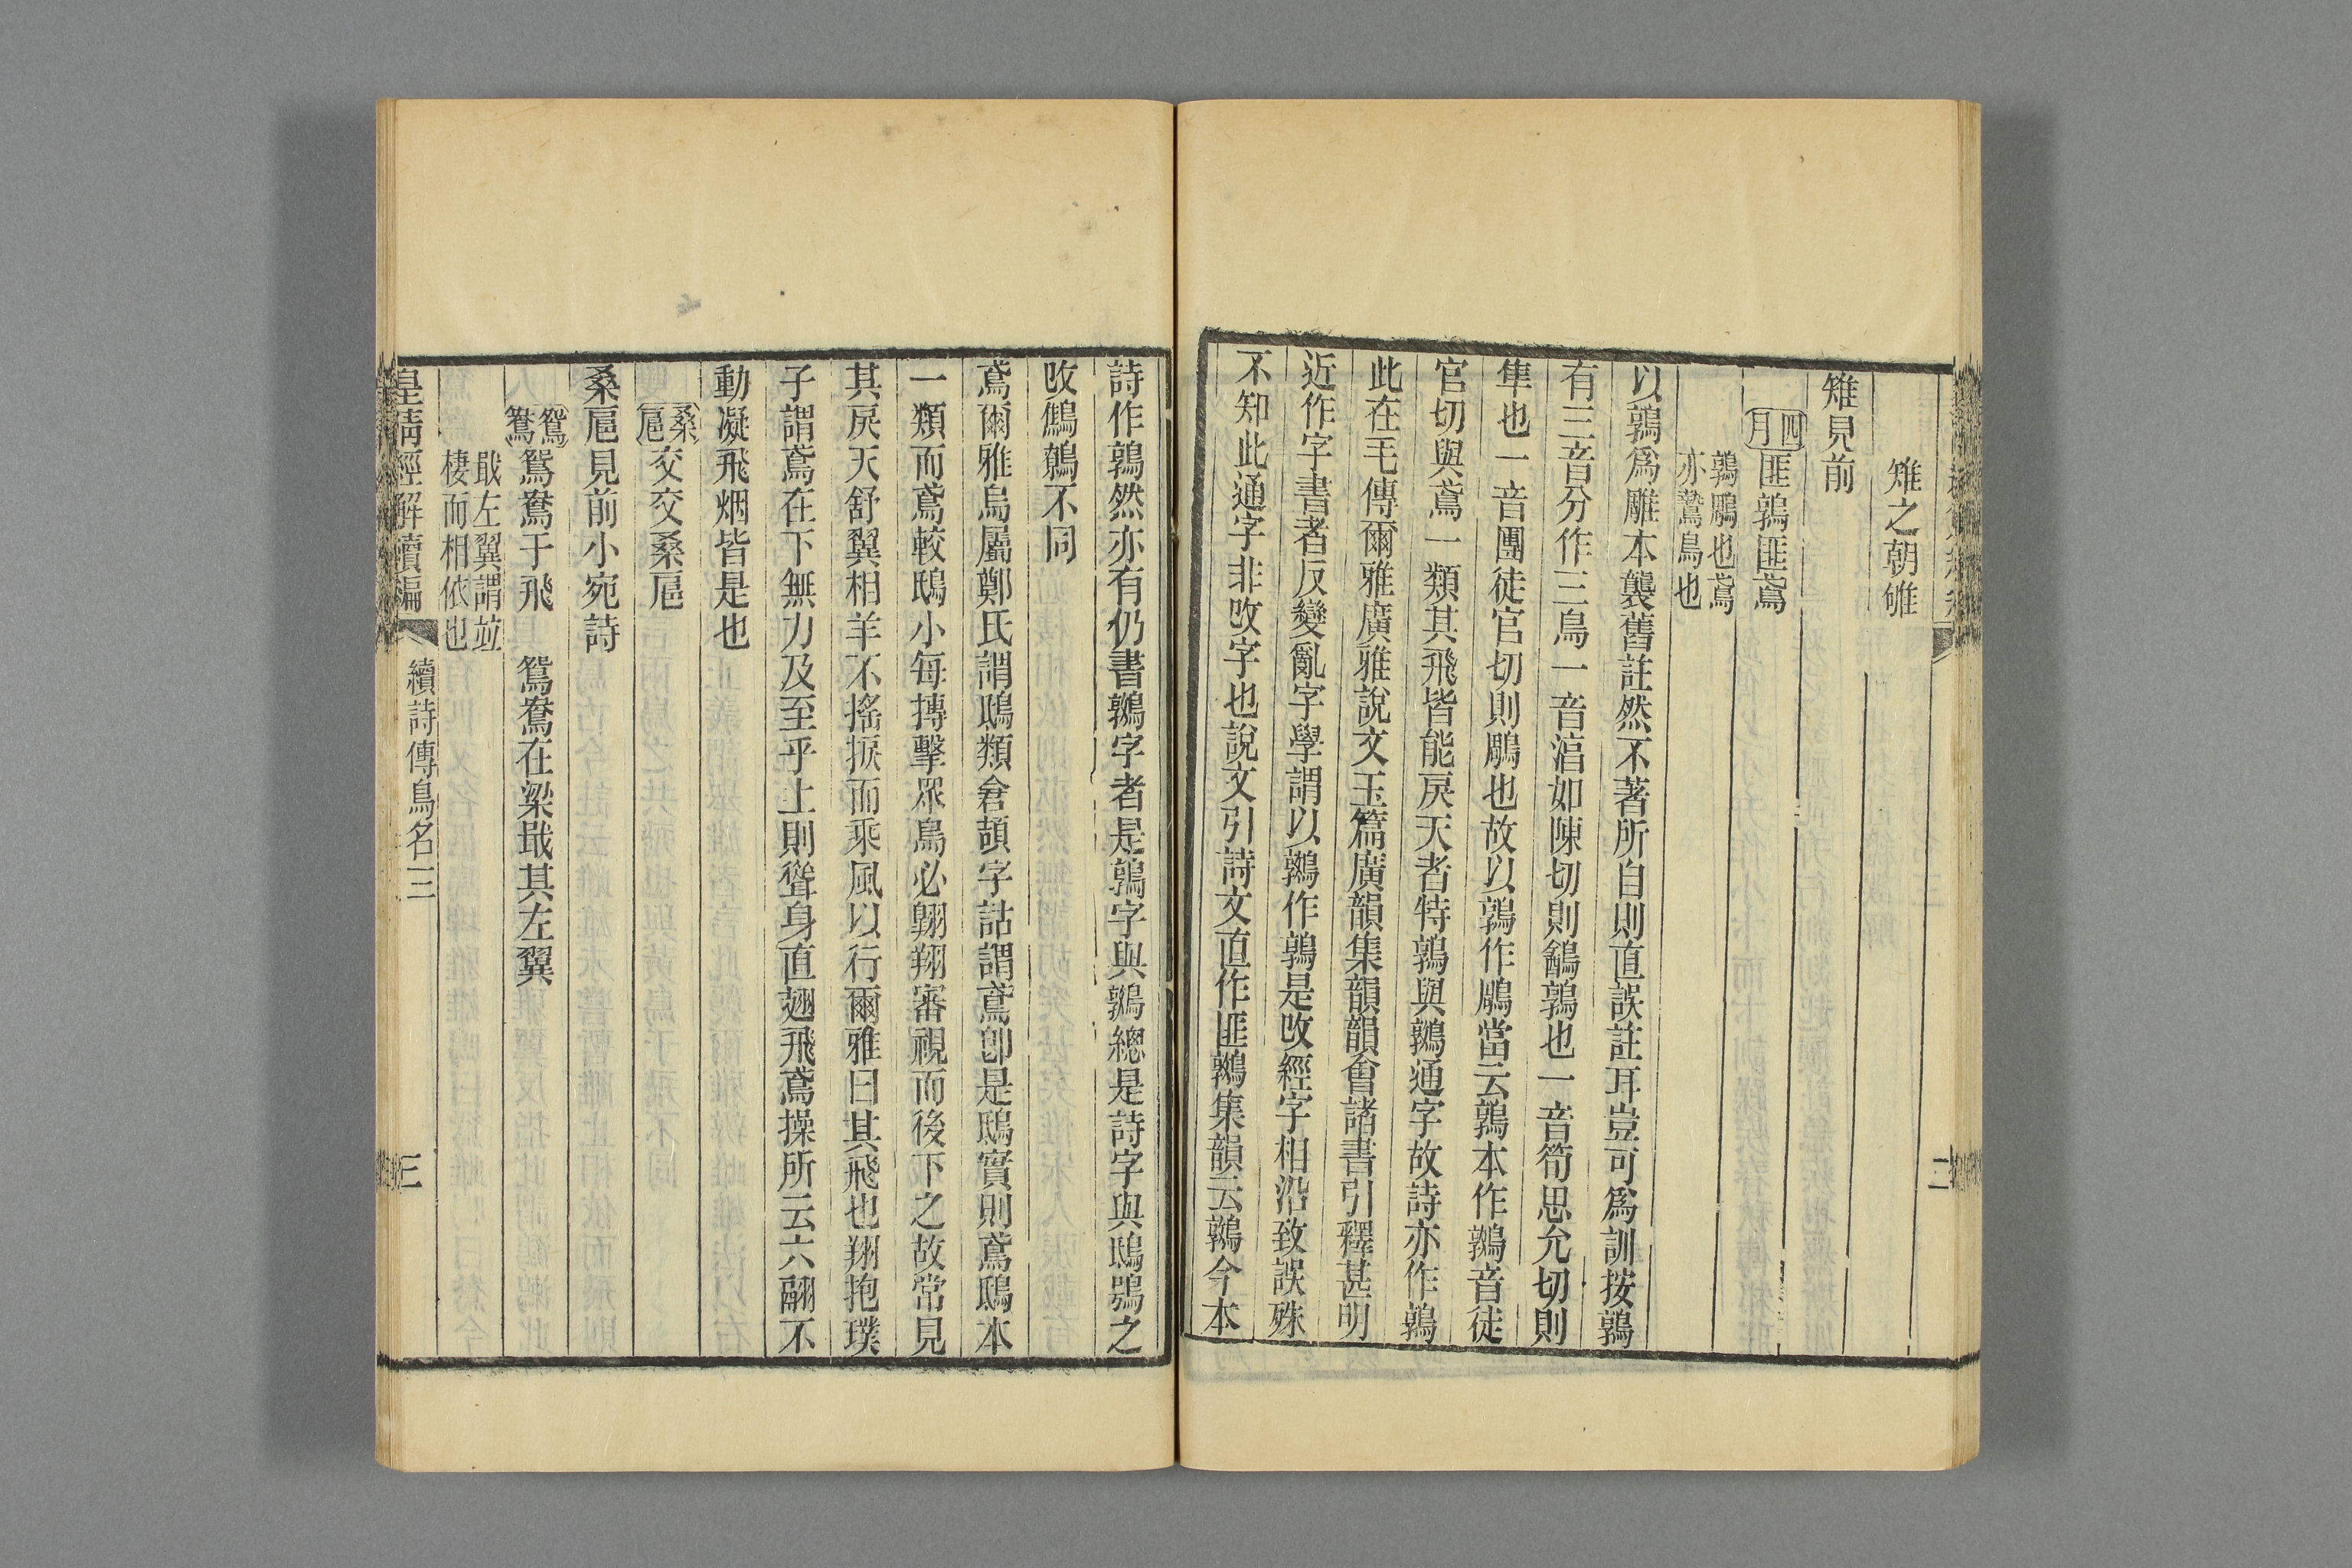 雉之朝雊
雉見前
四月匪鶉匪鳶
鶉鵰也鳶
亦鷙鳥也
以鶉爲雕本襲舊註然不著所自則直誤註耳豈可爲訓按鶉
有三音分作三鳥一音湻如陳切則鷂鶉也一音筍思允切則
隼也一音團徒官切則鵰也故以鶉作鵰當云鶉本作鷻音徒
官切與鳶一類其飛皆能戾天者特鶉與鷻通字故詩亦作鶉
此在毛傳爾雅廣雅說文玉篇廣韻集韻韻會諸書引釋甚明
近作字書者反變亂字學謂以鷻作鶉是攺經字相沿致誤殊
不知此通字非攺字也說文引詩文直作匪鷻集韻云鷻今本
二
詩作鶉然亦有仍書鷻字者是鶉字與鷻總是詩字與鴟鴞之
攺鷦鷯不同
鳶爾雅烏屬鄭氏謂鴟類倉頡字詁謂鳶卽是鴟實則鳶鴟本
一類而鳶較鴟小每搏擊眾鳥必翺翔審視而後下之故常見
其戾天舒翼相羊不搖振而乘風以行爾雅曰其飛也翔抱璞
子謂鳶在下無力及至乎上則聳身直翅飛鳶操所云六翮不
動凝飛烟皆是也
桑扈交交桑扈
桑扈見前小宛詩
鴛鴦鴛鴦于飛 鴛鴦在梁戢其左翼
戢左翼謂竝
棲而相依也
皇清經解續編 續詩傳鳥名三 三